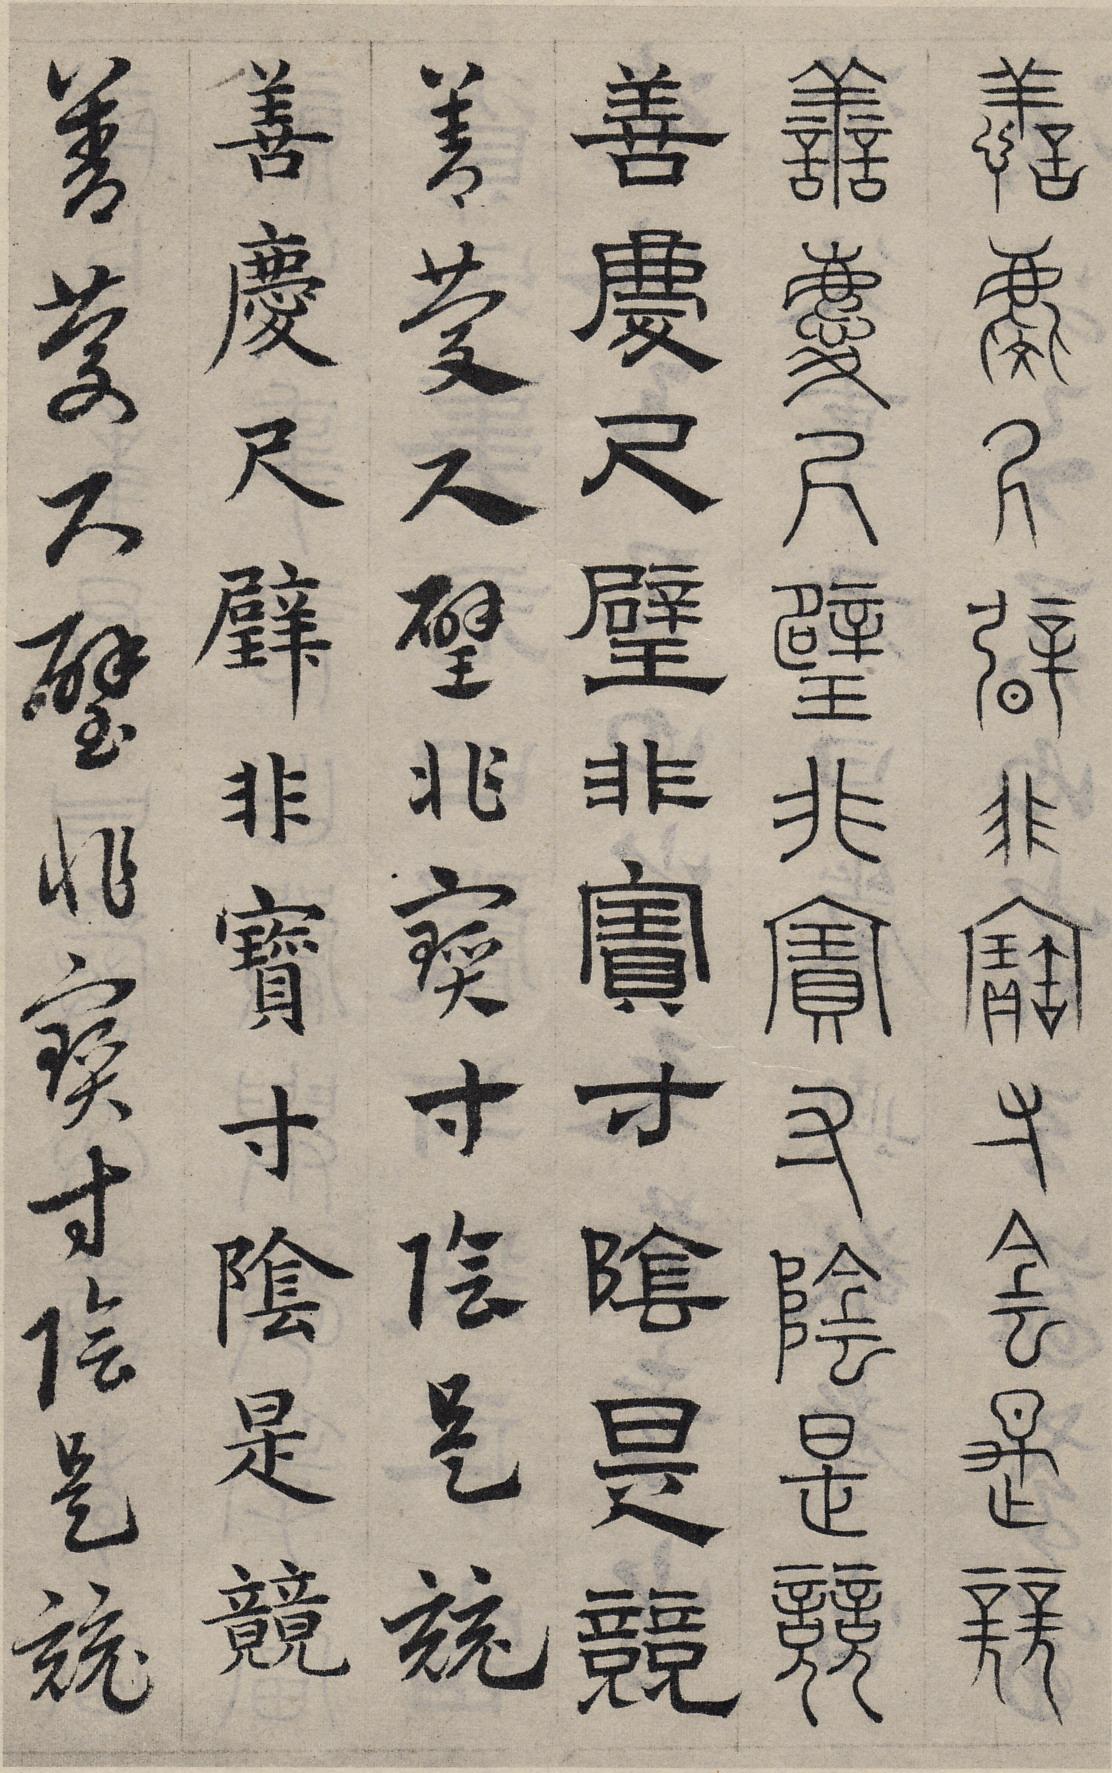 善慶尺璧非寶寸陰是競
善慶尺璧非寶寸陰是競
善慶尺璧非寶寸陰是競
善慶尺璧非寶寸陰是競
善慶尺璧非寶寸陰是競
善慶尺璧非寶寸陰是競